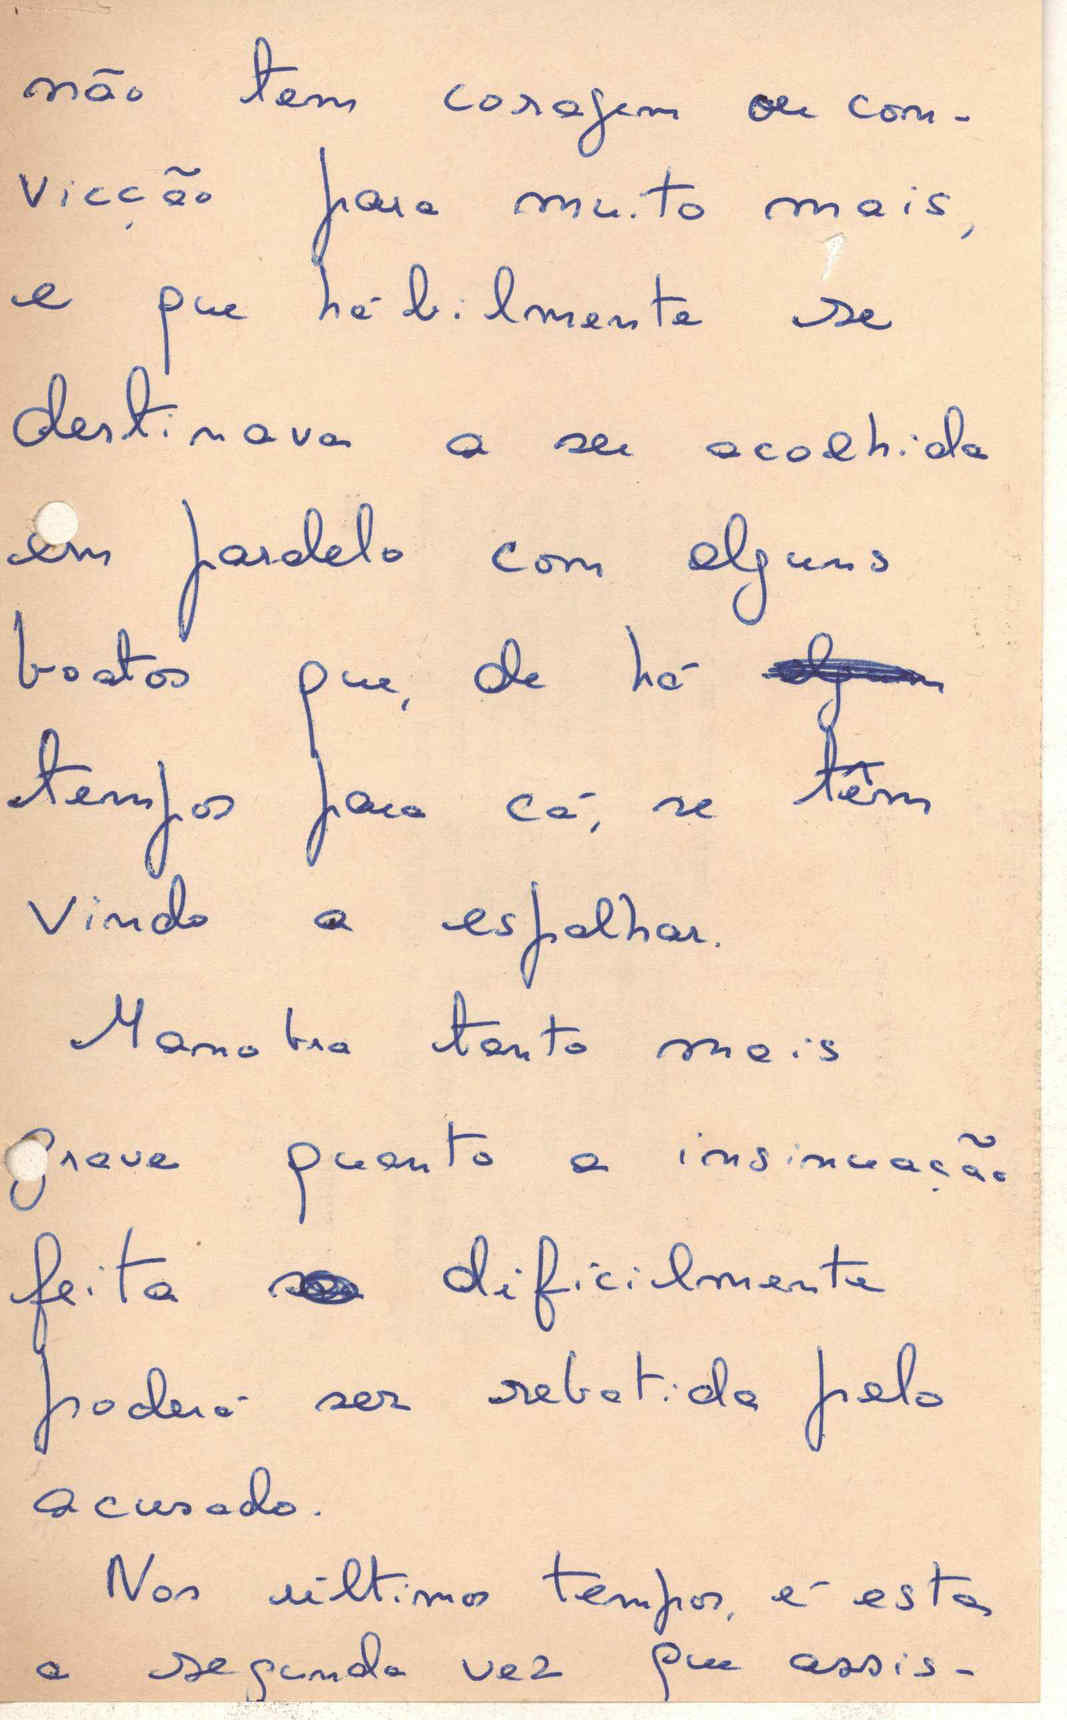 não tem coragem ou con-
vicção para muito mais,
e que hábilmente se
destinava a ser acolhida
em pardelo com alguns
boatos que, de há
tempos para cá, se têm
vindo a espalhar.
Manobra tanto mais
grave quanto a insinuação
feita dificilmente
poderá ser rebatida pelo
acusado.
Nos últimos tempos, é esta
a segunda vez que assis-